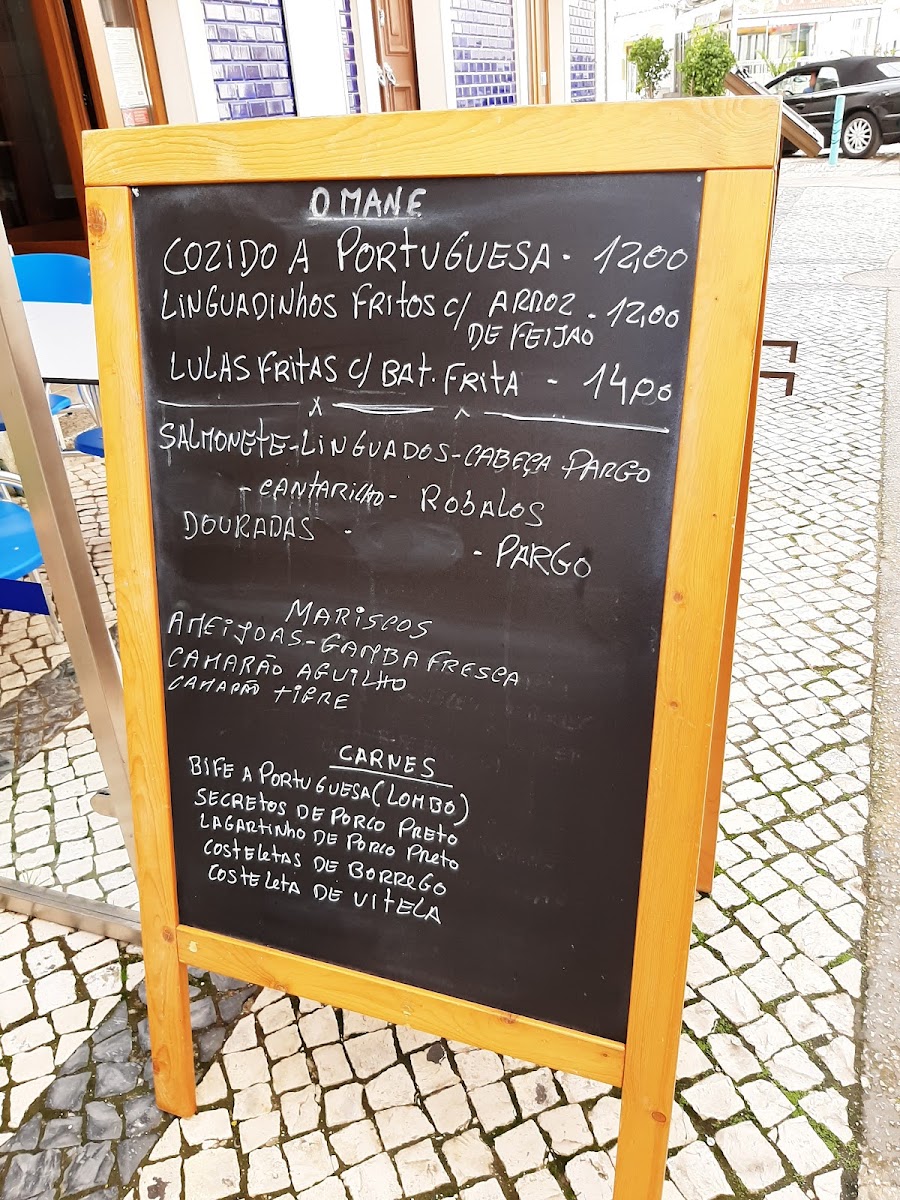 O MANE
COZIDO A PORTUGUESA - 12,00
LINGUADINHOS FRITOS C/ ARROZ - 12,00
DE FEIJAO
LULAS FRITAS C/ BAT. FRITA - 14,00
SALMONETE - LINGUADOS - CABEÇA PARGO
- CANTARILHO - ROBALOS
DOURADAS - - PARGO
MARISCOS
AMEIJOAS - GAMBA FRESCA
CAMARÃO AGUILHO
CAMARÃO TIGRE
CARNES
BIFE A PORTUGUESA (LOMBO)
SECRETOS DE PORCO PRETO
LAGARTINHO DE PORCO PRETO
COSTELETAS DE BORREGO
COSTELETA DE VITELA